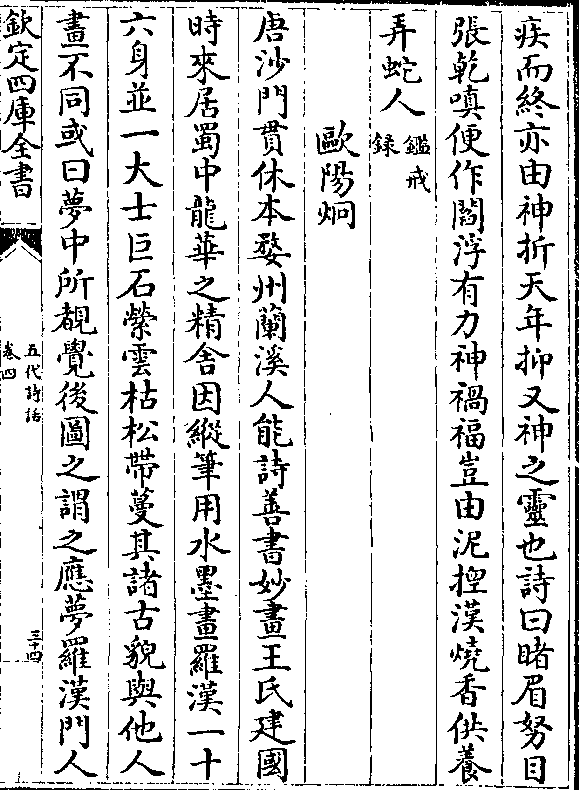 疾而終亦由神折天年抑又神之靈也詩曰睹眉努目
張乾嗔便作閻浮有力神禍福豈由泥揑漢燒香供養
弄蛇人鑑戒録
歐陽炯
唐沙門貫休本婺州蘭溪人能詩善書妙畫王氏建國
時來居蜀中龍華之精舍因縱筆用水墨畫羅漢一十
六身並一大士巨石縈雲枯松帶蔓其諸古貌與他人
畫不同或曰夢中所覩覺後圖之謂之應夢羅漢門人
欽定四庫全書
五代詩話
卷四
三十四